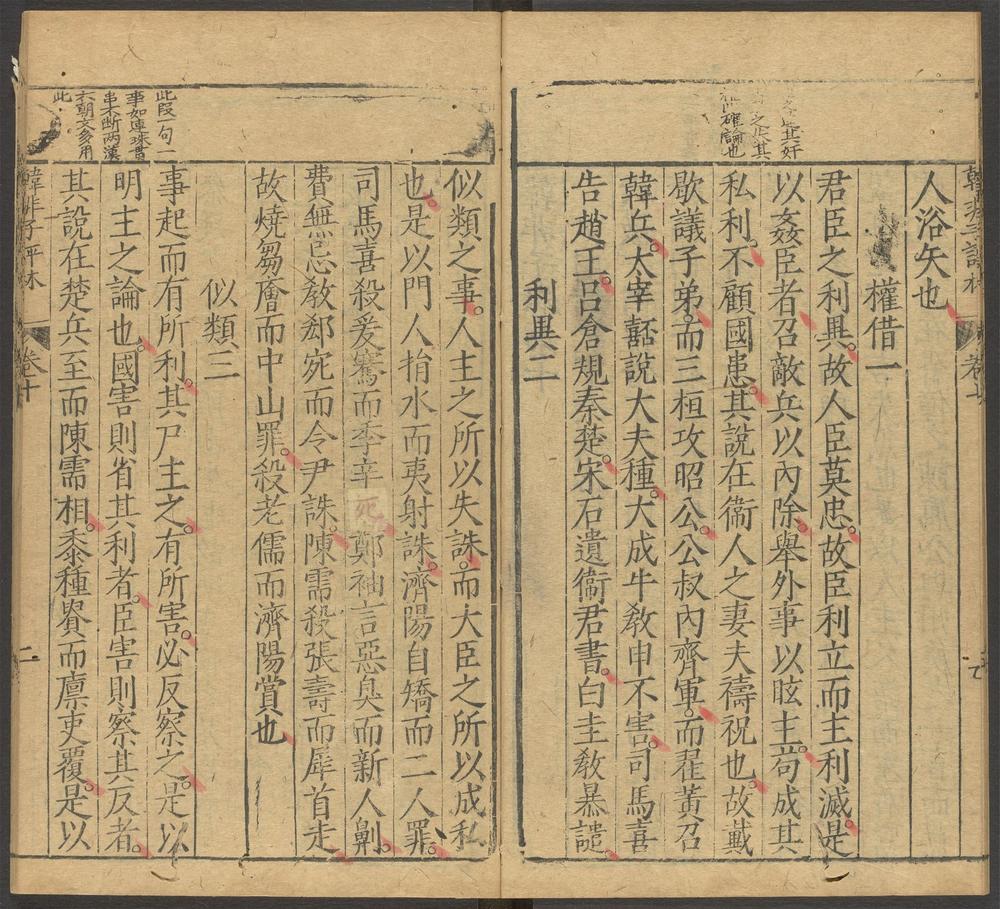 人浴矢也
權借一
君臣之利異。故人臣莫忠。故臣利立而主利滅。是
以姦臣者。召敵兵以內除。舉外事以眩主。苟成其
私利。不顧國患。其說在衞人之妻夫禱祝也。故戴
歇議子弟。而三桓攻昭公。公叔內齊軍。而翟黃召
韓兵。太宰嚭說大夫種。大成牛敎申不害。司馬喜
告趙王。呂倉規秦楚。宋石遺衞君書。白圭敎暴譴。
利異二
確論也
似類之事。人主之所以失誅。而大臣之所以成私
也。是以門人捐水而夷射誅。濟陽自矯而二人罪。
司馬喜殺爰騫而季辛死鄭袖言惡臭而新人劓。
費無忌敎郄宛而令尹誅。陳需殺張壽而犀首走
故燒芻廥而中山罪。殺老儒而濟陽賞也
似類三
事起而有所利。其尸主之。有所害。必反察之。是以
明主之論也。國害則省其利者。臣害則察其反者。
其說在楚兵至而陳需相。黍種貴而廩吏覆。是以
韓非子評林
卷十
二
此段一句一
事如連珠貫
串不斷兩漢
六朝文多用
此